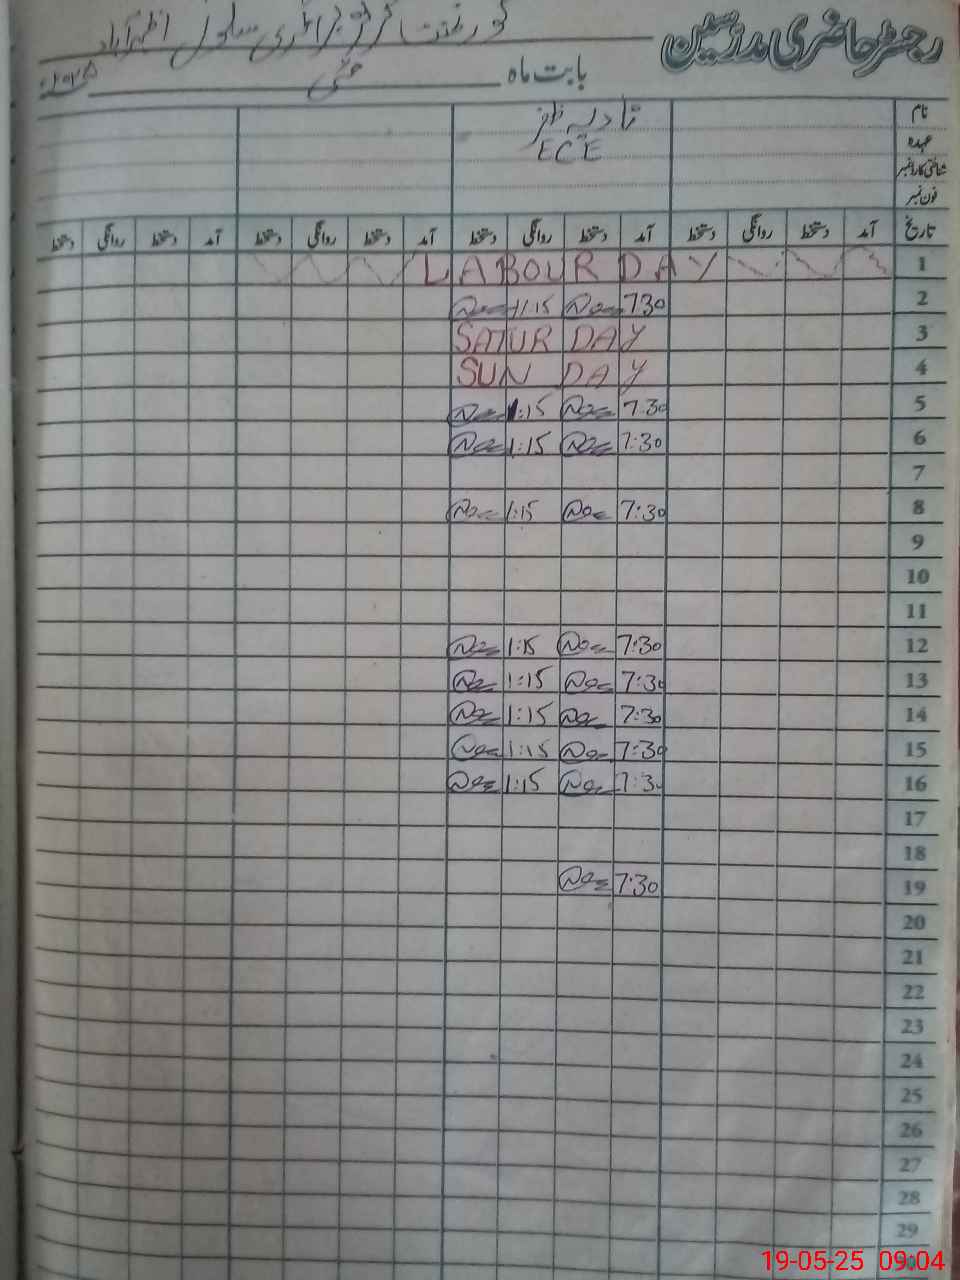 رجسٹر حاضری مدرسین گورنمنٹ گرلز پرائمری سکول اظہرآباد
بابت ماہ مئی ۲۰۲۵
نام نادیہ ناز
عہدہ ECE
شناختی کارڈ نمبر
فون نمبر
تاریخ آمد دستخط روانگی دستخط آمد دستخط روانگی دستخط آمد دستخط روانگی دستخط آمد دستخط روانگی دستخط
1 LABOUR DAY
2 730 11:15
3 SATUR DAY
4 SUN DAY
5 7:30 1:15
6 7:30 1:15
7
8 7:30 1:15
9
10
11
12 7:30 1:15
13 7:30 1:15
14 7:30 1:15
15 7:30 1:15
16 7:30 1:15
17
18
19 7:30
20
21
22
23
24
25
26
27
28
29
19-05-25 09:04